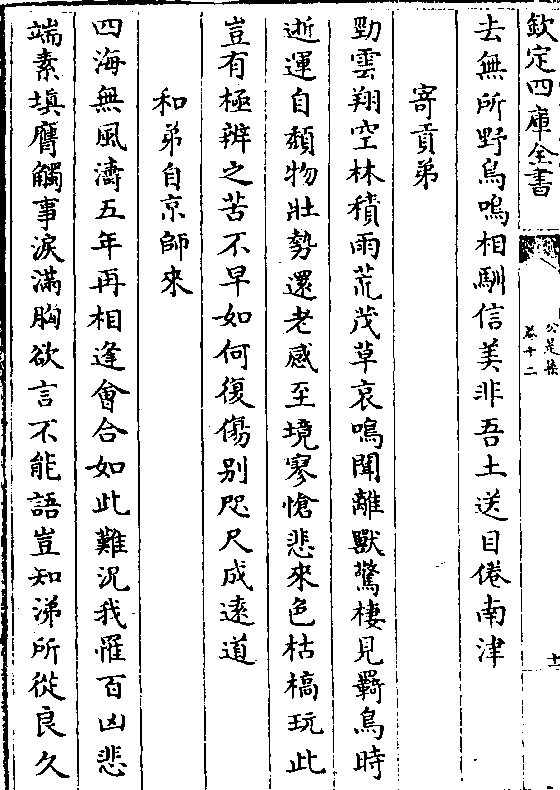 欽定四庫全書
公是集
卷十二
十
去無所野鳥鳴相馴信美非吾土送目倦南津
寄貢弟
勁雲翔空林積雨荒茂草哀鳴聞離獸驚棲見羇鳥時
逝運自頽物壯勢還老感至境寥愴悲來色枯槁玩此
豈有極辨之苦不早如何復傷别咫尺成逺道
和弟自京師來
四海無風濤五年再相逢會合如此難況我罹百凶悲
端素填膺觸事淚滿胸欲言不能語豈知涕所從良久